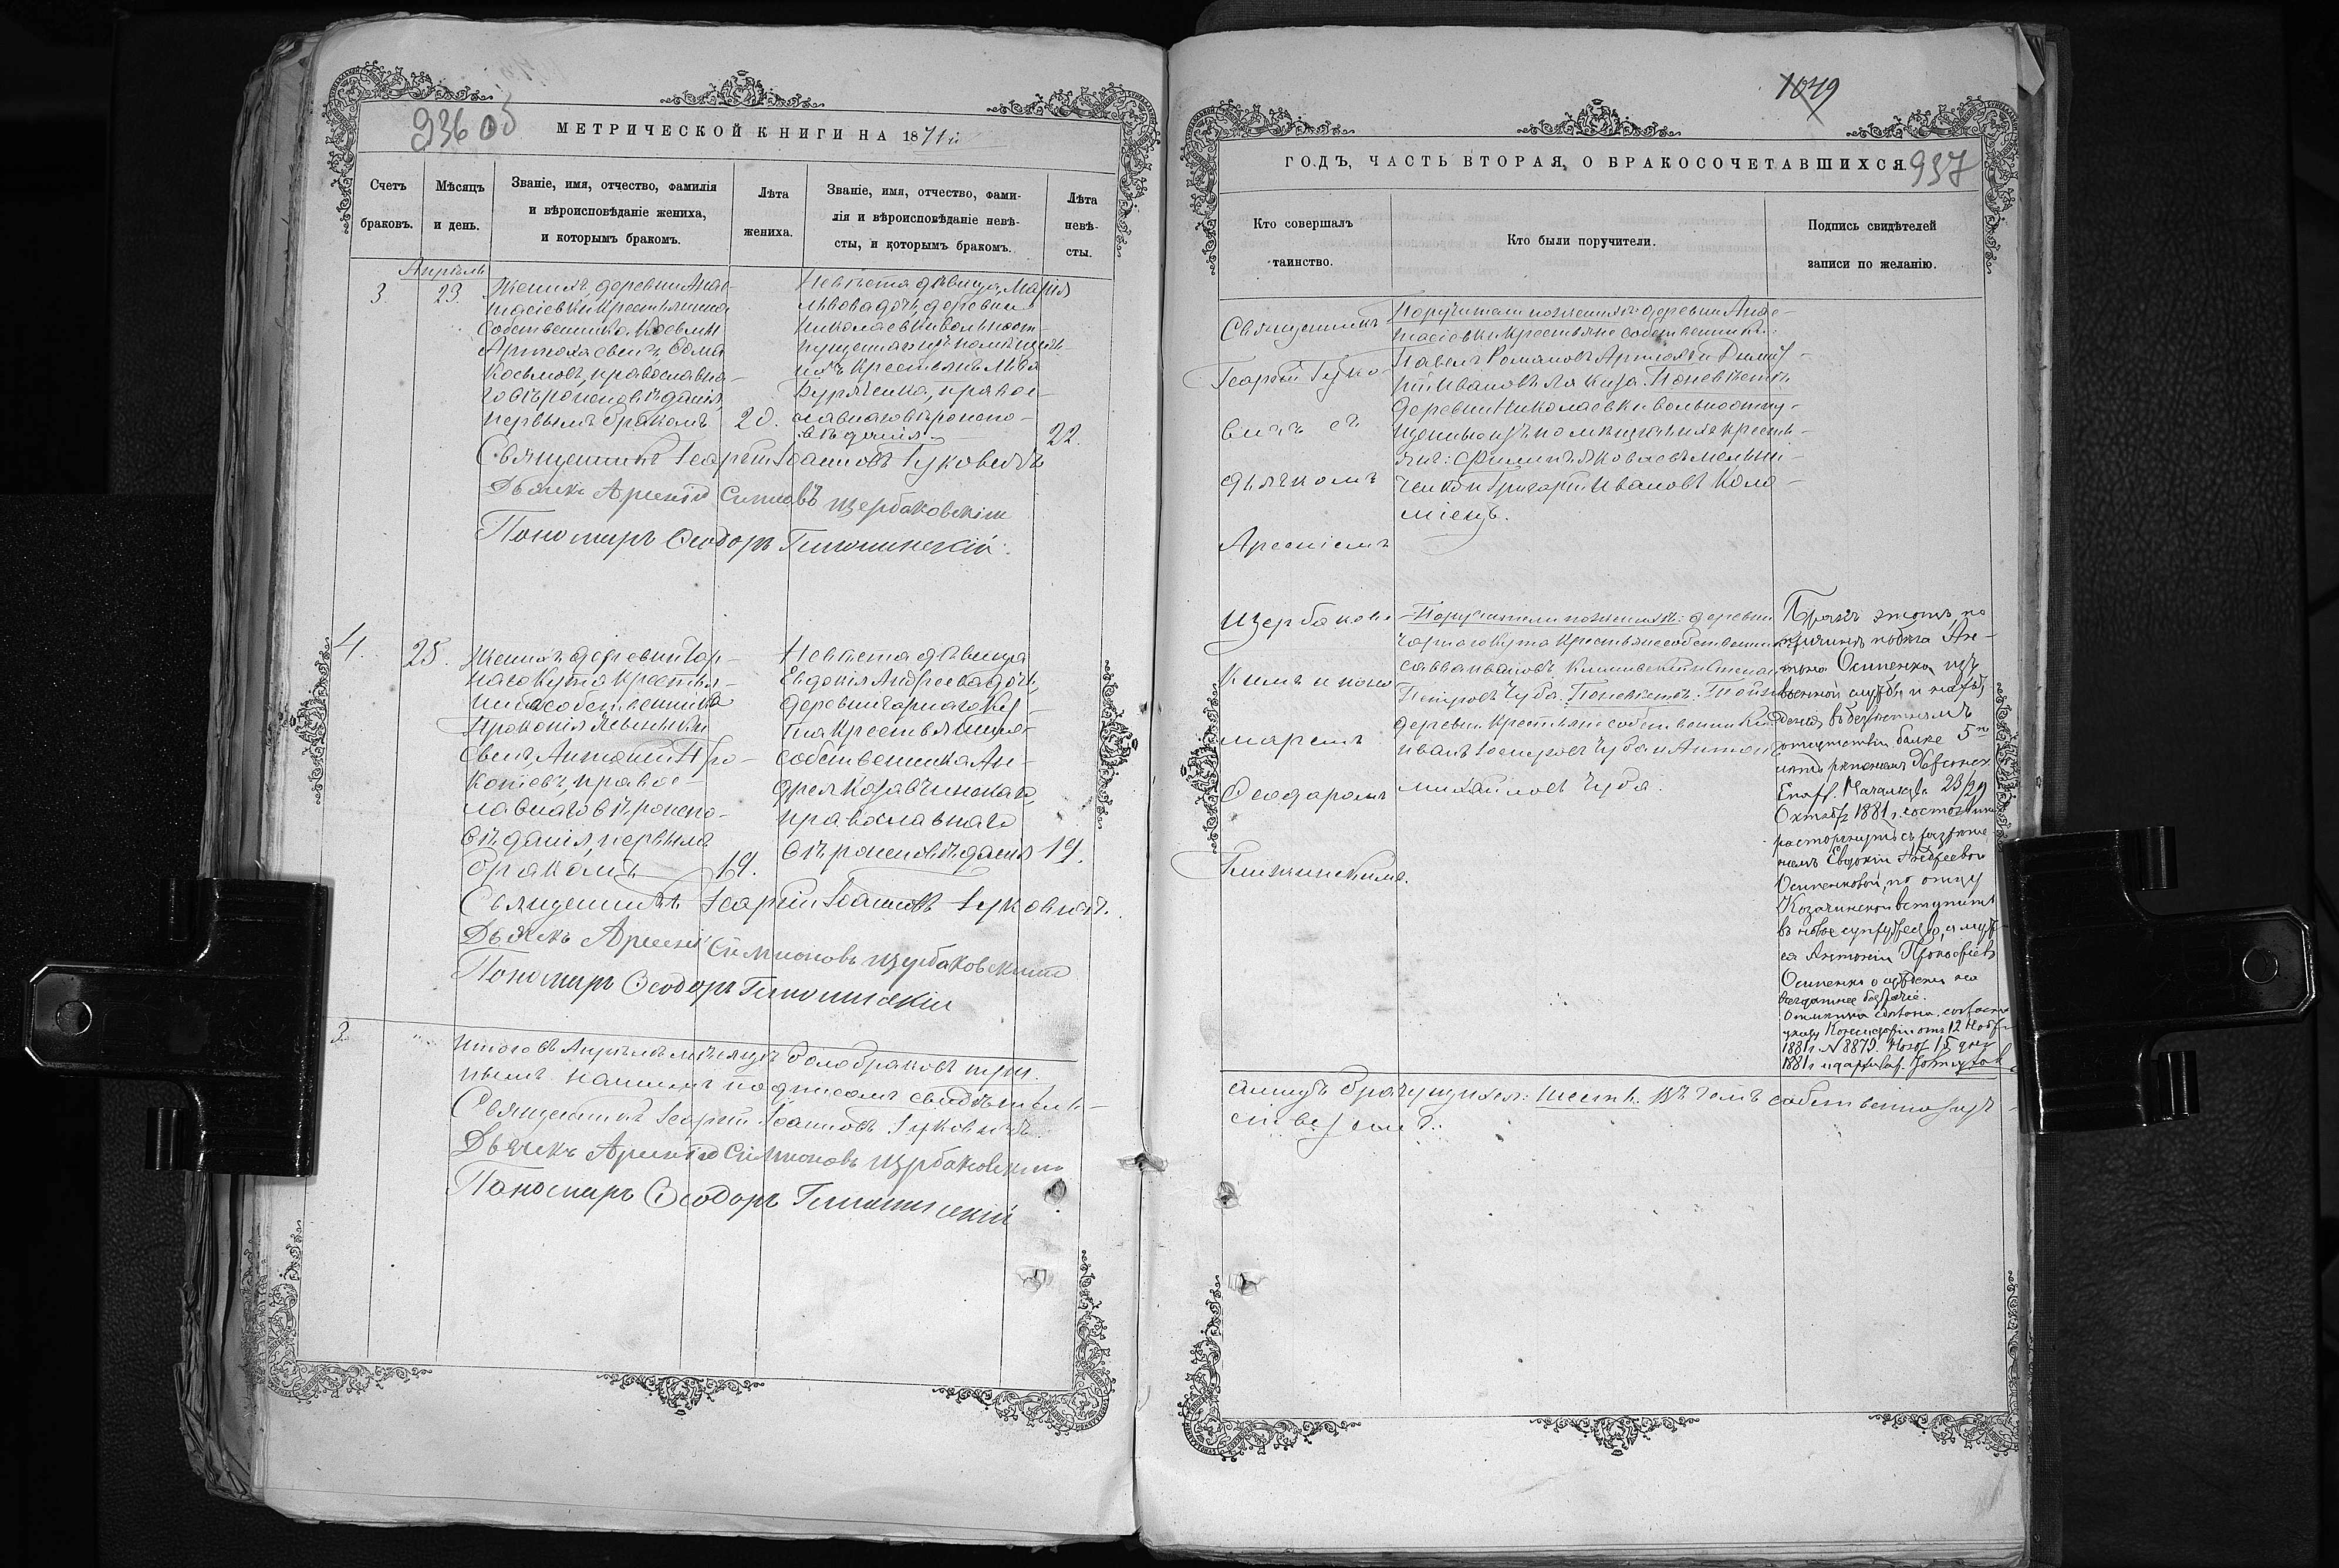 936 об
МЕТРИЧЕСКОЙ КНИГИ НА 1871й
Счетъ браковъ.
Мѣсяцъ и день.
Званіе, имя, отчество, фамилія
и вѣроисповѣданіе жениха,
и которымъ бракомъ.
Лѣта жениха.
Званіе, имя, отчество, фами-
лія и вѣроисповѣданіе невѣ-
сты, и которымъ бракомъ.
Лѣта невѣ-
сты.
Апрѣль
3
23.
Женихъ деревни Анас-
тасіевки крестьянина
собственника Косьмы
сынъ, Ѳома
Косьмовъ, православна-
го вѣроисповѣданія,
первымъ бракомъ
20.
Невѣста дѣвица, Марія
Львова дочь, деревни
Николаевки вольноот-
пущенная изъ помѣщич-
ихъ крестьянъ Льва
правос-
лавнаго вѣроиспо-
вѣданія.
22.
Священникъ Георгій Іоанновъ Гуковичъ
Дьячекъ Арсеній Симіоновъ Щербаковскій
Пономарь Ѳеодоръ
4.
25.
Женихъ деревни Чор-
наго Кута крестья-
нина собственника
Прокопія
сынъ, Антоній Про-
копіевъ, правос-
лавнаго вѣроиспо-
вѣданія, первымъ
бракомъ
19.
Невѣста дѣвица
Евдокія Андреева дочь,
деревни Чорнаго Ку-
та крестьянина
собственника Ан-
дрея Козачинскаго,
православнаго
вѣроисповѣданія
19.
Священникъ Георгій Іоанновъ Гуковичъ.
Дьячекъ Арсеній Симіоновъ Щербаковскій
Пономарь Ѳеодоръ
3.
Итого въ Апрѣлѣ мѣсяцѣ было браковъ три.
нымъ нашимъ подписомъ свидѣтель-
Священникъ Георгій Іоанновъ Гуковичъ
Дьячекъ Арсеній Симіоновъ Щербаковскій
Пономарь Ѳеодоръ
1049
ГОДЪ, ЧАСТЬ ВТОРАЯ, О БРАКОСОЧЕТАВШИХСЯ.
937
Кто совершалъ
таинство.
Кто были поручители.
Подпись свидѣтелей
записи по желанію.
Священникъ
Георгій Гуко-
вичъ съ
дьячкомъ
Арсеніемъ
Щербаковс
кимъ и поно
маремъ
Ѳеодоромъ
Поручители по женихѣ: деревни Анас-
тасіевки крестьяне собственники:
Павелъ Романовъ и Дими-
трій Ивановъ По невѣстѣ:
деревни Николаевки вольноотпу-
щенные изъ помѣщичьихъ кресть-
янъ: Филиппъ Яковлевъ Мельни-
ченко и Григорій Ивановъ Коло-
міецъ.
Поручители по женихѣ: деревни
Чорнаго Кута крестьяне собственники
Савва Ивановъ и Степан
Петровъ Чуба. По невѣстѣ: той же
деревни крестьяне собственники
Иванъ Чуба и Антон
Михайловъ Чуба.
Бракъ этотъ, по
причинѣ побѣга Ан-
тонія Осипенко изъ
военной службы и нахож-
денія въ безвѣстномъ
отсутствіи болѣе 5ти
лѣтъ, Херсонск
Епарх. Начальства 23/29
Октября 1881 г. состоявш
расторгнутъ съ разрѣше-
ніемъ Евдокіи Андреевой
Осипенковой, по отцу
Козачинской вступить
въ новое супружество, а муж
ея Антонія Прокофіева
Осипенко осужденъ на
всегдашнее безбрачіе.
Отмѣтка сдѣлана согласно
указу Консисторіи отъ 12 Нояб
1881 г. № 8879. Нояб 15 дня
1881 г.
а лицъ брачущихся: шесть. Въ чемъ собственноруч-
ствуемъ: